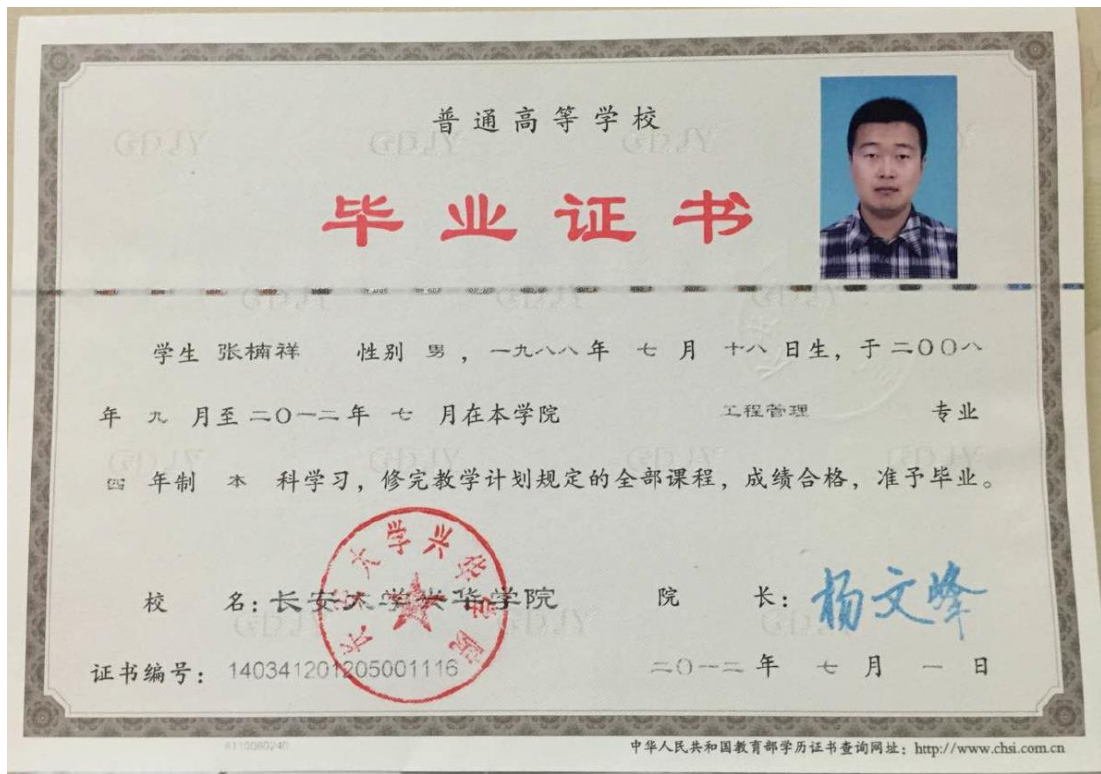 普通高等学校
毕业证书
学生 张楠祥 性别 男 ，一九八八年 七 月 十八 日生，于二〇〇八
年 九 月至二〇一二年 七 月在本学院 工程管理 专业
四 年制 本 科学习，修完教学计划规定的全部课程，成绩合格，准予毕业。
长安大学兴华学院
校 名：长安大学兴华学院 院 长：杨文峰
证书编号：140341201205001116 二〇一二年 七 月 一 日
中华人民共和国教育部学历证书查询网址：http://www.chsi.com.cn